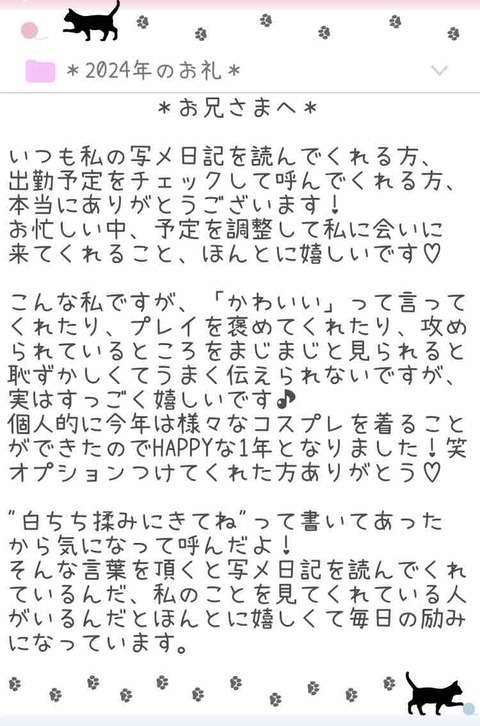 ＊2024年のお礼＊
＊お兄さまへ＊
いつも私の写メ日記を読んでくれる方、
出勤予定をチェックして呼んでくれる方、
本当にありがとうございます！
お忙しい中、予定を調整して私に会いに
来てくれること、ほんとに嬉しいです♡
こんな私ですが、「かわいい」って言って
くれたり、プレイを褒めてくれたり、攻め
られているところをまじまじと見られると
恥ずかしくてうまく伝えられないですが、
実はすっごく嬉しいです♪
個人的に今年は様々なコスプレを着ること
ができたのでHAPPYな1年となりました！笑
オプションつけてくれた方ありがとう♡
"白ちち揉みにきてね"って書いてあった
から気になって呼んだよ！
そんな言葉を頂くと写メ日記を読んでくれ
ているんだ、私のことを見てくれている人
がいるんだとほんとに嬉しくて毎日の励み
になっています。